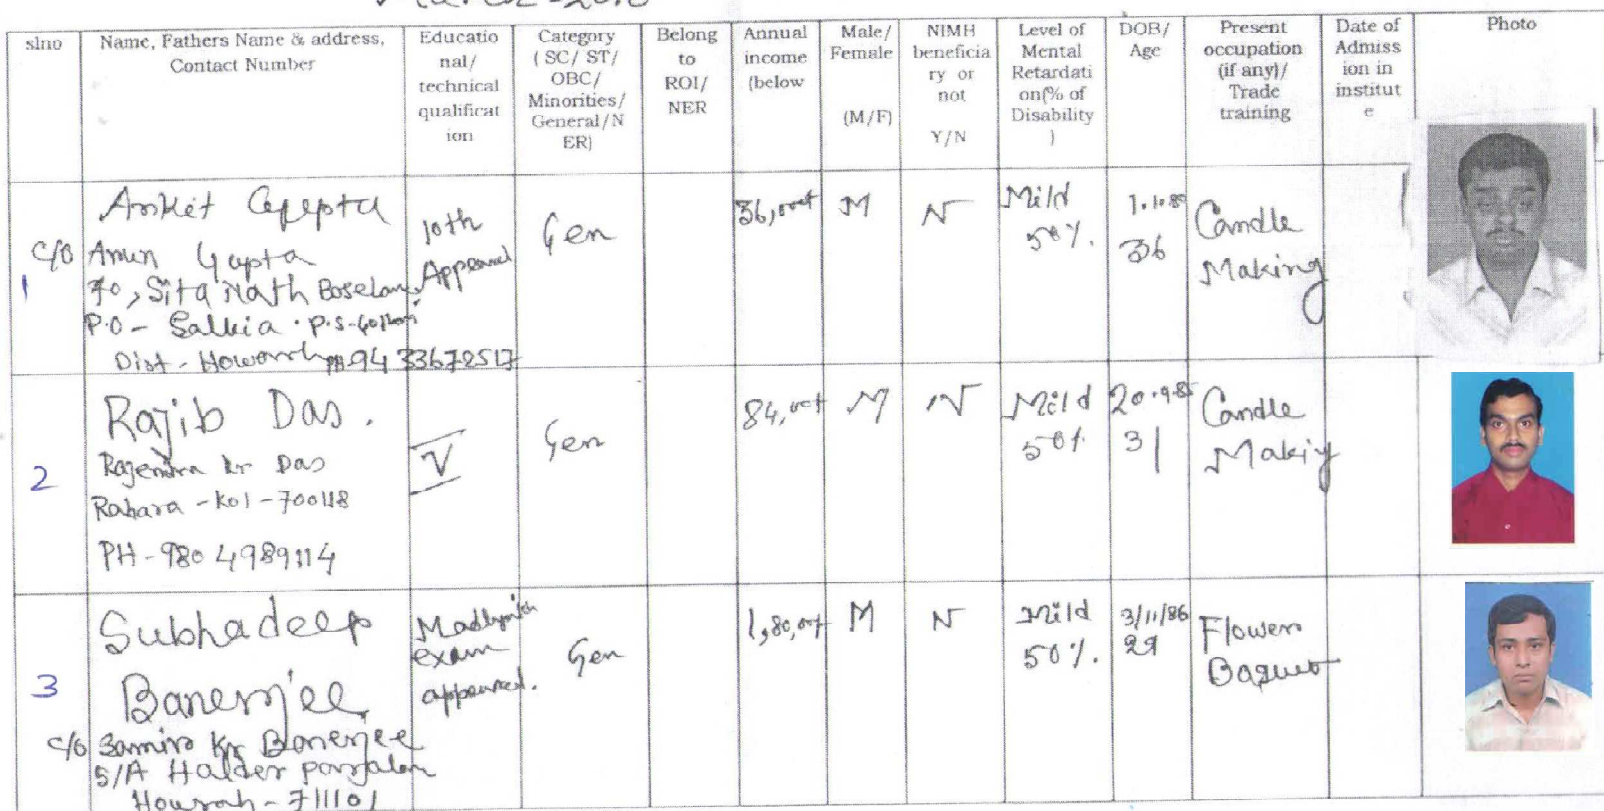 slno
Name, Fathers Name & address,
Contact Number
Educatio
nal/
technical
qualificat
ion
Category
( SC/ ST/
OBC/
Minorities/
General/N
ER)
Belong
to
ROI/
NER
Annual
income
(below
Male/
Female
(M/F)
NIMH
beneficia
ry or
not
Y/N
Level of
Mental
Retardati
on(% of
Disability
)
DOB/
Age
Present
occupation
(if any)/
Trade
training
Date of
Admiss
ion in
institut
e
Photo
1
Ankit Gupta
C/O Arun Gupta
70, Sita Nath Boselane
P.O - Salkia . P.S-
Dist - Howrah PH 9433672517
10th
Appeared
Gen
36,000/-
M
N
Mild
50%.
36
Candle
Making
2
Rajib Das.
Rajendra kr Das
Rahara - Kol - 700118
PH - 9804989114
V
Gen
84,000/-
M
N
Mild
50%
20.9.85
31
Candle
Making
3
Subhadeep
Banerjee
C/O Samir Kr Banerjee
5/A Halder
Howrah - 711101
Madhyamik
exam
appeared.
Gen
1,80,000/-
M
N
Mild
50%.
3/11/86
29
Flower
Baquet